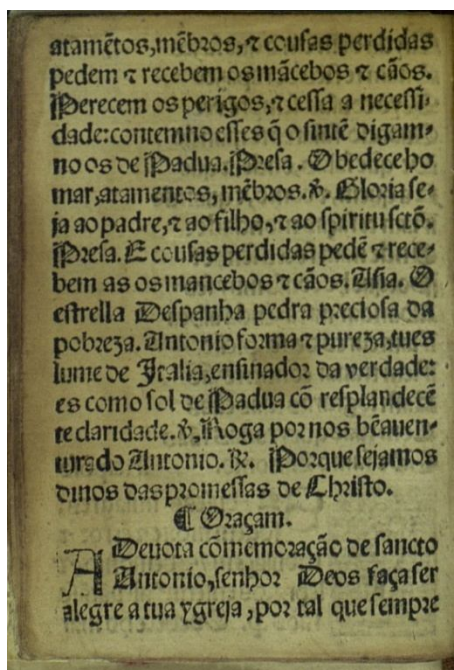 atamẽtos, mẽbros, ⁊ cousas perdidas
pedem ⁊ recebem os mãcebos ⁊ cãos.
Perecem os perigos, ⁊ cessa a necessi-
dade: contemno esses q̃ o sintẽ digam-
no os de Padua. Presa. Obedece ho
mar, atamentos, mẽbros. ℣. Gloria se-
ja ao padre, ⁊ ao filho, ⁊ ao spiritu sctõ.
Presa. E cousas perdidas pedẽ ⁊ rece-
bem as os mancebos ⁊ cãos. Asia. O
estrella Despanha pedra preciosa da
pobreza. Antonio forma ⁊ pureza, tu es
lume de Italia, ensinador da verdade:
es como sol de Padua cõ resplandecẽ
te claridade. ℣. Roga por nos bẽauen-
turado Antonio. ℟. Porque sejamos
dinos das promessas de Christo.
¶ Oraçam.
A Deuota cõmemoração de sancto
Antonio, senhor Deos faça ser
alegre a tua ygreja, por tal que sempre